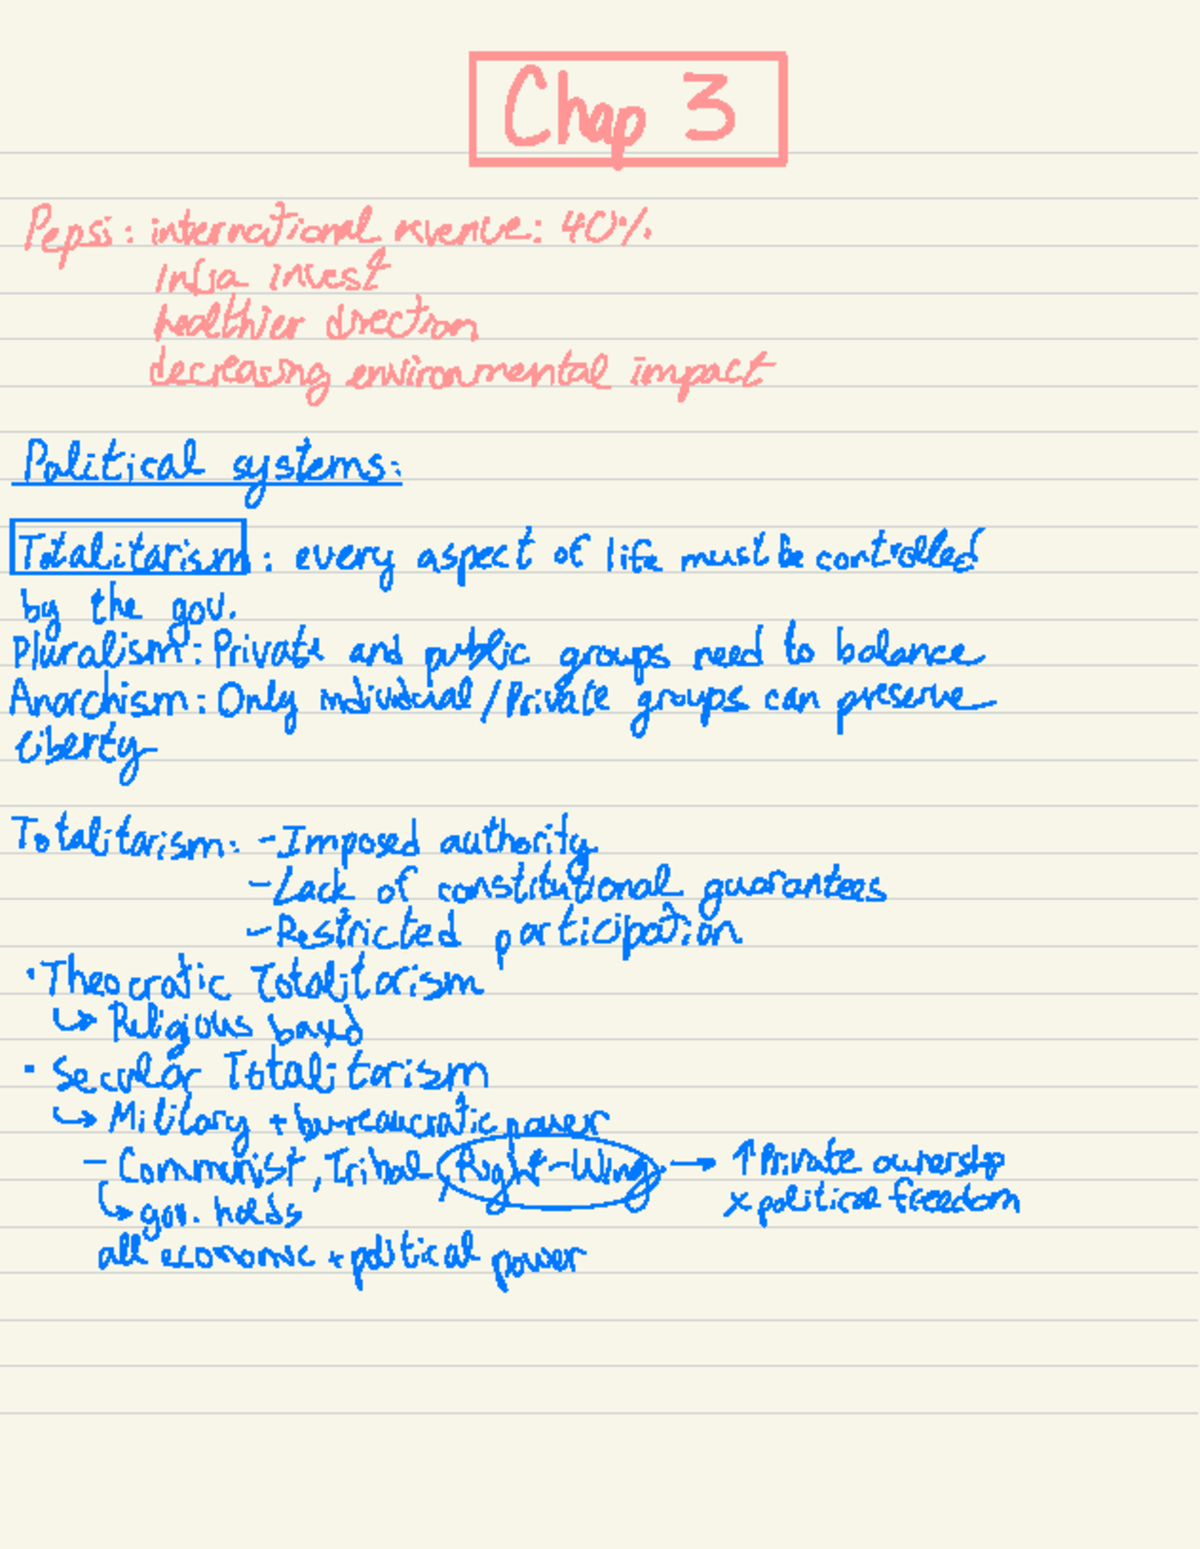 Chap 3
Pepsi: international revenue: 40%
Infra invest
healthier direction
decreasing environmental impact
Political systems:
Totalitarism: every aspect of life must be controlled
by the gov.
Pluralism: Private and public groups need to balance
Anarchism: Only individual/Private groups can preserve
liberty
Totalitarism: -Imposed authority
-Lack of constitutional guarantees
-Restricted participation
·Theocratic Totalitarism
↳ Religious based
· Secular Totalitarism
↳ Military + bureaucratic power
- Communist, Tribal, Right-Wing → ↑ Private ownership
x political freedom
↳ gov. holds
all economic + political power